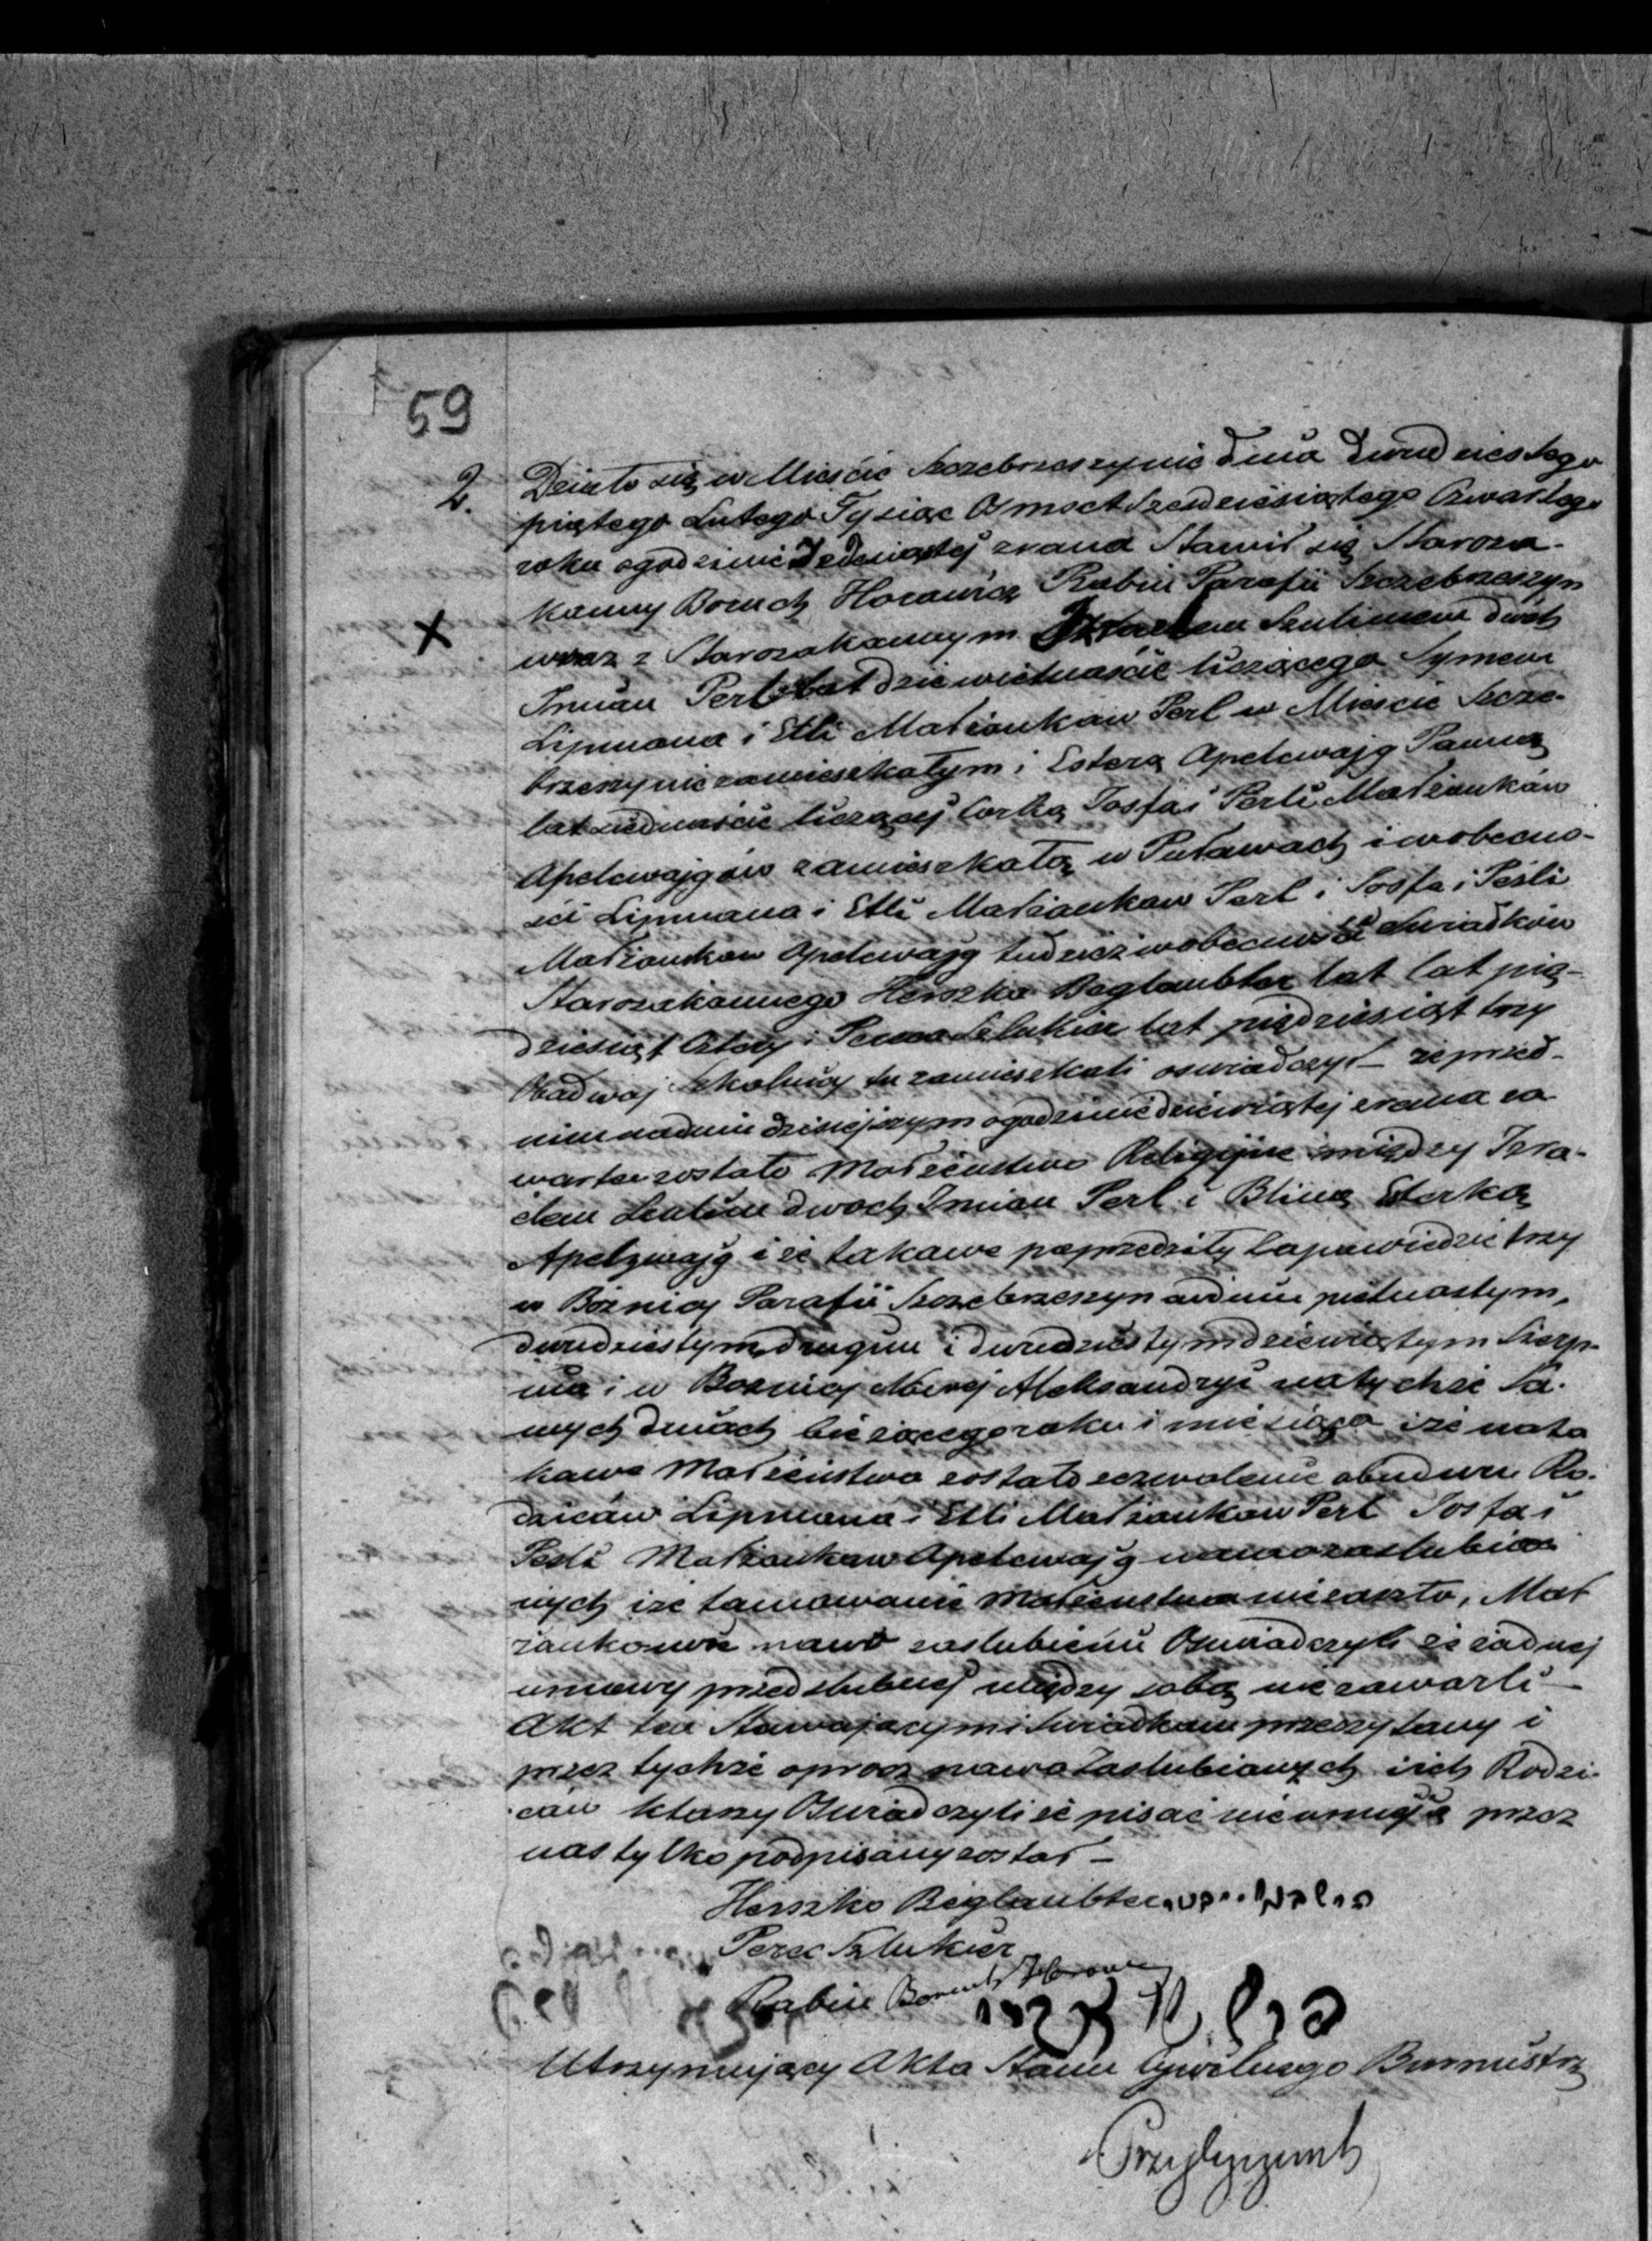 59
2. Działo się w Mieście Szczebrzeszynie dnia dwudziestego
piątego Lutego Tysiąc Osmset Szesdziesiątego Czwartego
roku ogodzinie Jedenastej zrana Stawił się Staroza-
konny Boruch Horowicz Rabin Parafii Szczebrzeszyn
X wraz z Starozakonnym Izraelem Szulimem dwóch
Imian Perl lat dziewietnaście liczącego Synem
Lipmana i Etli Małżonkow Perl w Mieście Szcze-
brzeszynie zamieszkałym i Esterą Apelcwajg Panną
lat siedmnaście liczącej Corką Josfa i Perli Małżonków
Apelcwajgów zamieszkałą w Puławach i wobecno-
ści Lipmana i Etli Małżonkow Perl i Josfa i Pesli
Małżonkow Apelcwajg tudzież wobecności Swiadków
Starozakonnego Herszka Beglaubter lat lat pię-
dziesiąt Cztery i Szlukier lat piędziesiąt trzy
Obadwaj Szkolnicy tu zamieszkali oswiadczył – że przed-
nim nadniu dzisiejszym ogodzinie dziewiątej zrana za-
warte zostało Małżeństwo Religijne między Izra-
elem Szulim dwoch Imian Perl i Blimą Esterką
Apelzwajg i że takowe poprzedziły Zapowiedzie trzy
w Bożnicy Parafii Szczebrzeszyn wdniu pietnastym,
dwudziestym drugim i dwudziestym dziewiątym Sierp-
nia i w Boznicy Nowej Aleksandryi natychże sa-
mych dniach bieżącego roku i miesiąca iże nata
kowe Małżeństwo zostało zezwolenie obudwu Ro-
dziców Lipmana i Etli Małżonkow Perl Josfa i
Pesli Małżonkow Apelcwajg nowozaslubio
nych iże tamowanie Małżeństwa niezaszło, Mał
żonkowie nowo zaslubieni Oswiadczyli że żadnej
umowy przedslubnej między sobą nie zawarli –
Akt ten Stawającym i Swiadkom przeczytany i
przez tychże oprocz nowo Zaslubionych i ich Rodzi-
ców którzy Oswiadczyli że pisać nieumieją przez
nas tylko podpisany został –
Herszko Beglaubter
Perec Szlukier
Rabin Boruch Horowicz
Utrzymujący Akta Stanu Cywilnego Burmistrz